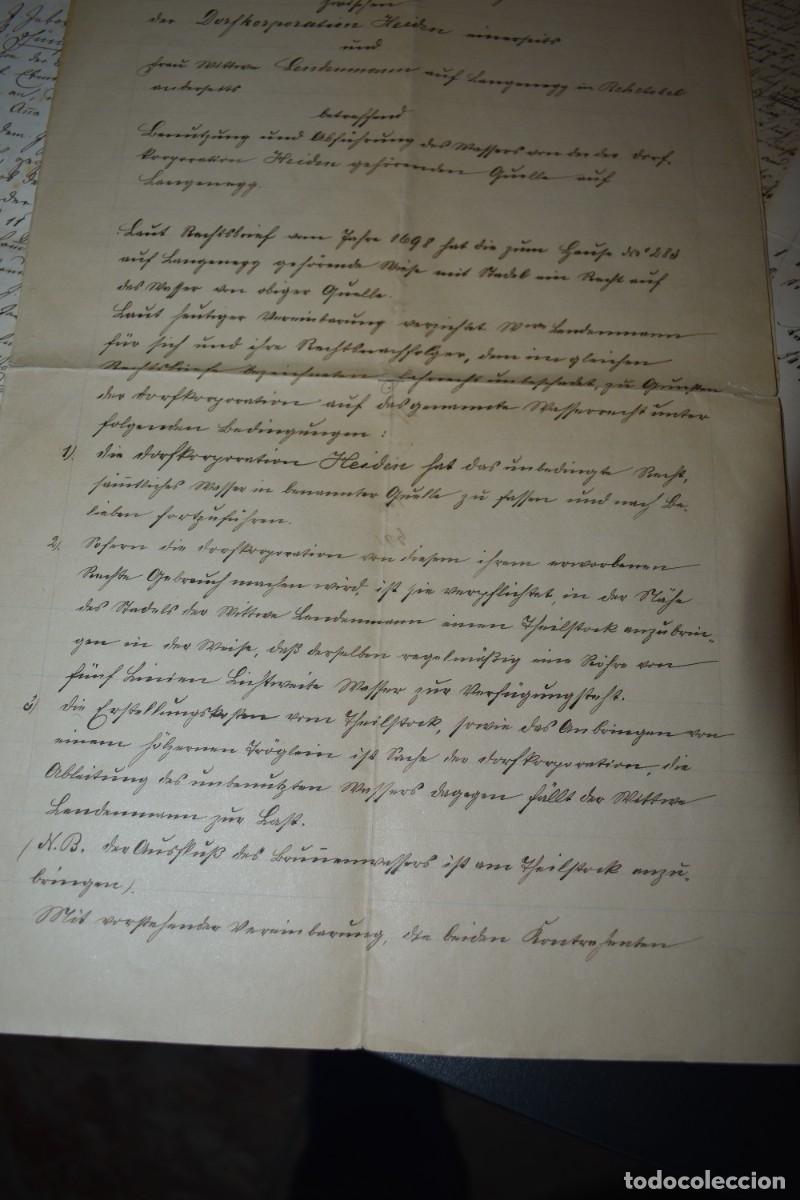 zwischen
der Dorfkorporation Heiden einerseits
und
Frau Wittwe Lendenmann auf Langenegg in Rehetobel
anderseits
betreffend
Benutzung und Abführung des Wassers von der der Dorf-
korporation Heiden gehörenden Quelle auf
Langenegg.
Laut Rechtsbrief vom Jahre 1698 hat die zum Hause No 283
auf Langenegg gehörende Wiese mit Stadel ein Recht auf
das Wasser von obiger Quelle.
Laut heutiger Vereinbarung verzichtet Wwe Lendenmann
für sich und ihre Rechtsnachfolger, dem im gleichen
Rechtsbriefe bezeichneten unbeschadet, zu Gunsten
der Dorfkorporation auf das genannte Wasserrecht unter
folgenden Bedingungen:
1). die Dorfkorporation Heiden hat das unbedingte Recht,
sämtliches Wasser in benannter Quelle zu fassen und nach Be-
lieben fortzuführen.
2). Sofern die Dorfkorporation von diesem ihrem erworbenen
Rechte Gebrauch machen wird, ist sie verpflichtet, in der Nähe
des Stadels der Wittwe Lendenmann einen Theilstock anzubrin-
gen in der Weise, daß derselben regelmäßig eine Röhre von
fünf Linien Lichtweite Wasser zur Verfügung steht.
3) die Erstellungskosten vom Theilstock, sowie das Anbringen von
einem hölzernen Tröglein ist Sache der Dorfkorporation, die
Ableitung des unbenutzten Wassers dagegen fällt der Wittwe
Lendenmann zur Last.
(N.B. der Ausfluß des Brunnenwassers ist am Theilstock anzu-
bringen).
Mit vorstehender Vereinbarung, die beiden Kontrahenten
todocoleccion